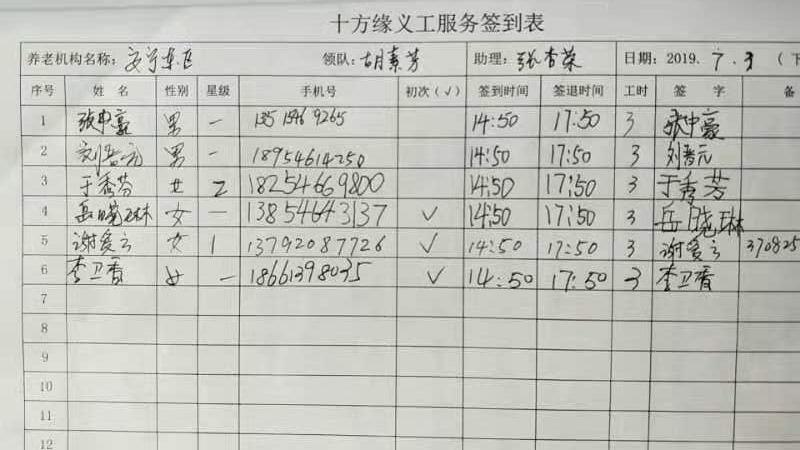 十方缘义工服务签到表
养老机构名称： 领队：胡素芳 助理：张杏荣 日期：2019. 7. 3 （下
序号 姓 名 性别 星级 手机号 初次（√） 签到时间 签退时间 工时 签 字 备
1 张中豪 男 一 14:50 17:50 3 张中豪
2 刘晋元 男 一 18954614250 14:50 17:50 3 刘晋元
3 于秀芬 女 2 18254669800 14:50 17:50 3 于秀芳
4 岳晓琳 女 一 13854643137 √ 14:50 17:50 3 岳晓琳
5 谢爱云 女 1 13792087726 √ 14:50 17:50 3 谢爱云 370825
6 李卫香 女 一 18661398035 √ 14:50 17:50 3 李卫香
7
8
9
10
11
12